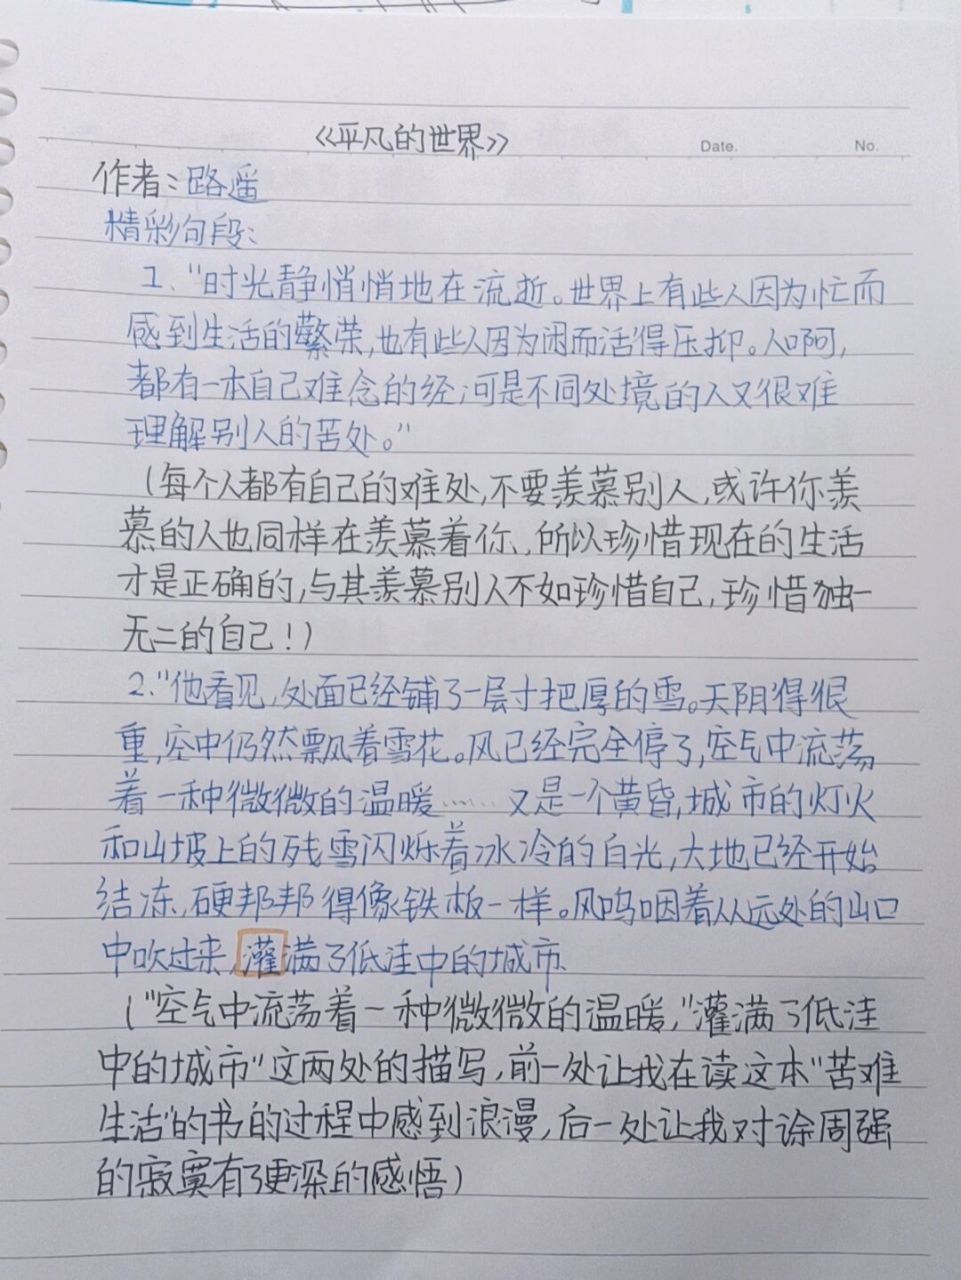 《平凡的世界》
Date. No.
作者：路遥
精彩句段：
1、"时光静悄悄地在流逝。世界上有些人因为忙而
感到生活的繁荣，也有些人因为闲而活得压抑。人啊，
都有一本自己难念的经；可是不同处境的人又很难
理解别人的苦处。"
（每个人都有自己的难处，不要羡慕别人，或许你羡
慕的人也同样在羡慕着你、所以珍惜现在的生活
才是正确的，与其羡慕别人不如珍惜自己，珍惜独一
无二的自己！）
2、"他看见，处面已经铺了一层寸把厚的雪。天阴得很
重，空中仍然飘着雪花。风已经完全停了，空气中流荡
着一种微微的温暖……又是一个黄昏，城市的灯火
和山坡上的残雪闪烁着冰冷的白光，大地已经开始
结冻，硬邦邦得像铁板一样。风呜咽着从远处的山口
中吹过来，灌满了低洼中的城市、
（"空气中流荡着一种微微的温暖，"灌满了低洼
中的城市"这两处的描写，前一处让我在读这本"苦难
生活"的书的过程中感到浪漫，后一处让我对徐周强
的寂寞有了更深的感悟）